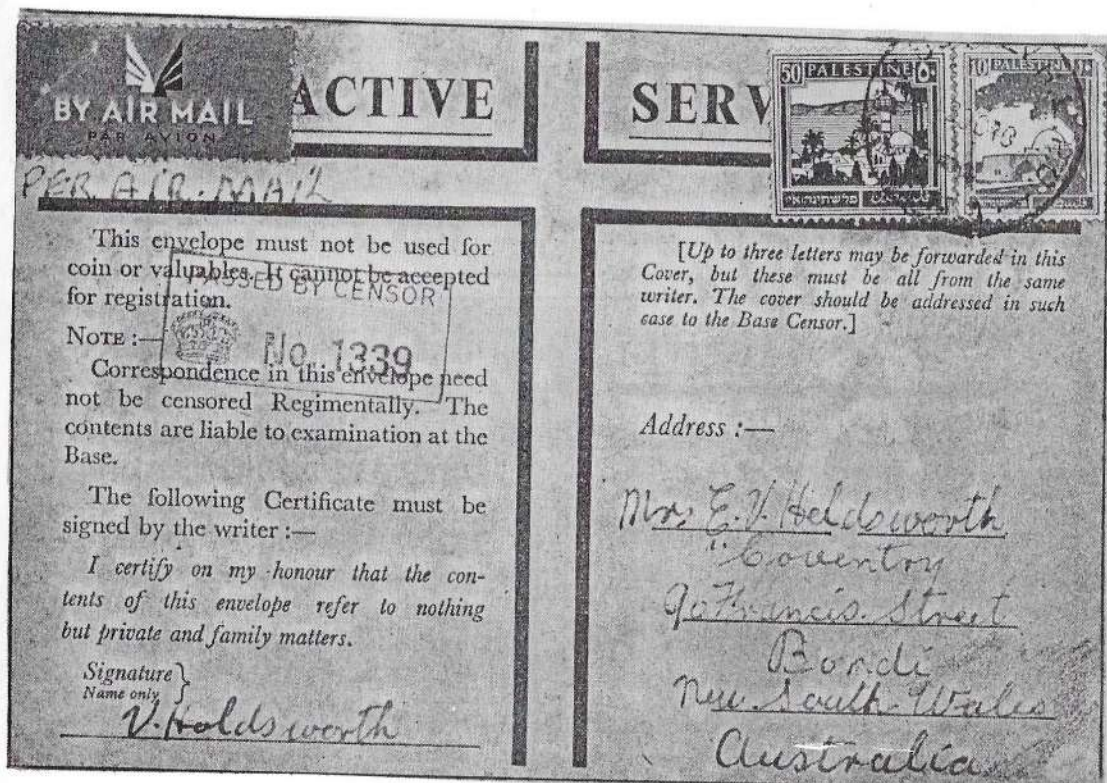 BY AIR MAIL
PAR AVION
ACTIVE SERV
50 PALESTINE ٥٠
פלשתינה א״י
10 PALESTINE ١٠
PER AIR. MAIL
This envelope must not be used for
coin or valuables. It cannot be accepted
for registration.
NOTE :—
Correspondence in this envelope need
not be censored Regimentally. The
contents are liable to examination at the
Base.
The following Certificate must be
signed by the writer :—
I certify on my honour that the con-
tents of this envelope refer to nothing
but private and family matters.
Signature }
Name only
V. Holdsworth
PASSED BY CENSOR
No. 1339
[Up to three letters may be forwarded in this
Cover, but these must be all from the same
writer. The cover should be addressed in such
case to the Base Censor.]
Address :—
Mrs E. V. Holdsworth
"Coventry
90 Francis. Street
Bondi
New South Wales
Australia